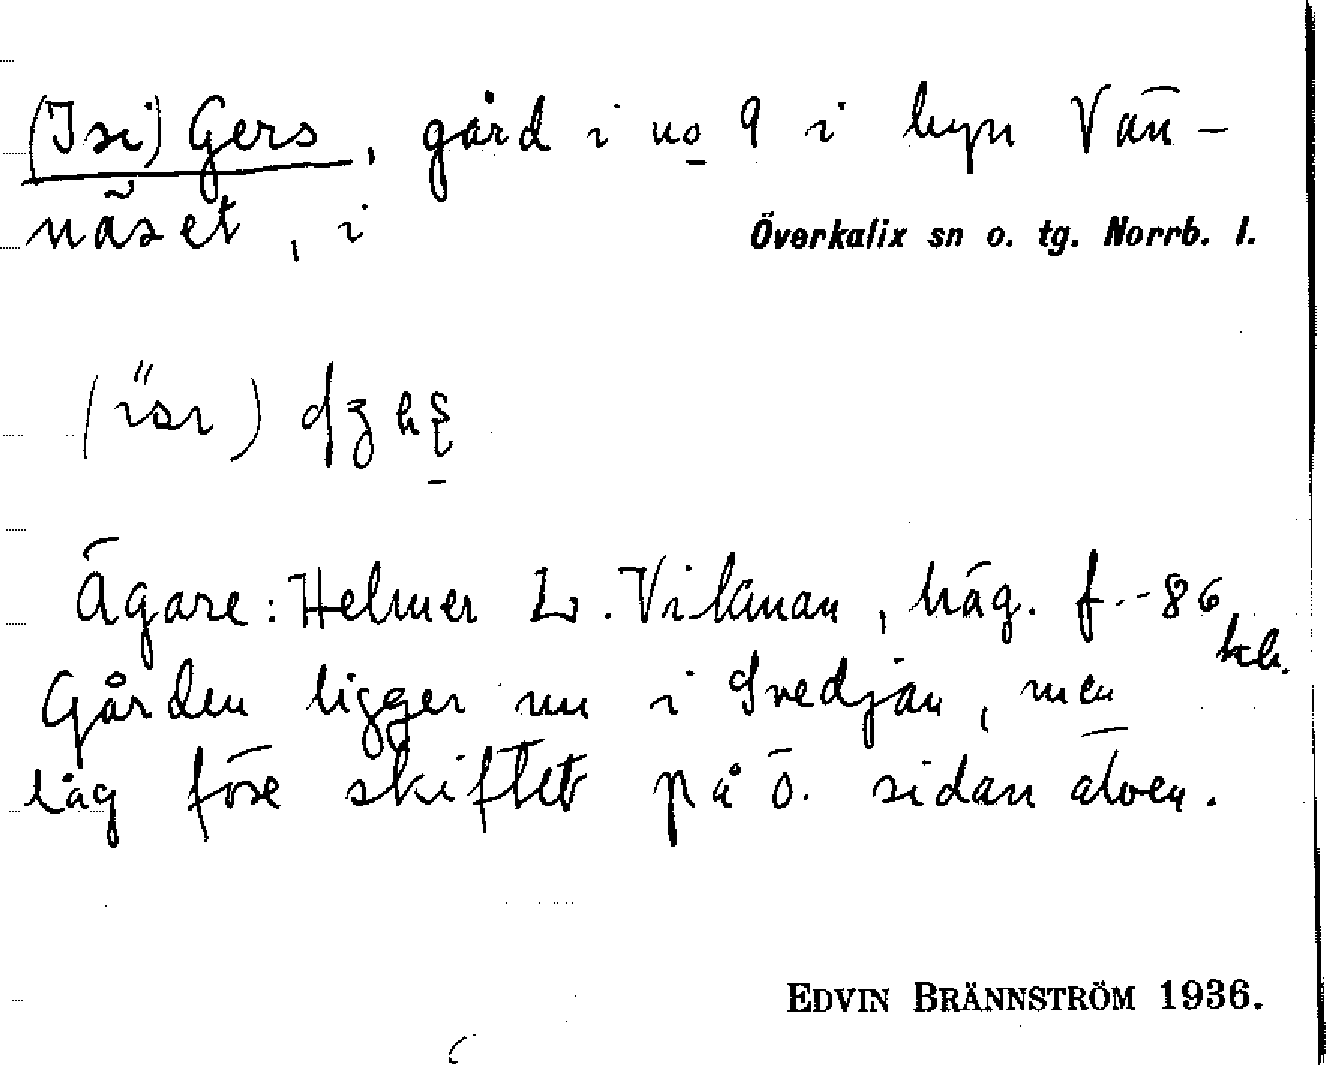 (Isi) Gers, gård i no 9 i byn Vän-
näset, i Överkalix sn o. tg. Norrb. l.
Ägare: Helmer L. Vikman, häg. f. -86
Gården ligger nu i Svedjan, men
låg före skiftet på ö. sidan älven.
EDVIN BRÄNNSTRÖM 1936.